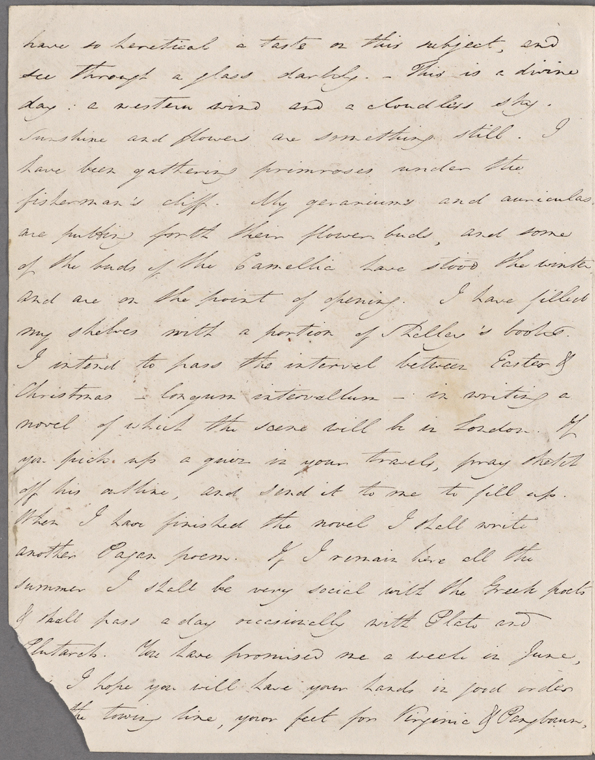 have so heretical a taste on this subject, and
see through a glass darkly. – This is a divine
day: a western wind and a cloudless sky.
Sunshine and flowers are something still. I
have been gathering primroses under the
fisherman's cliff. My geraniums and auriculas
are putting forth their flower buds, and some
of the buds of the Camellia have stood the winter
and are on the point of opening. I have filled
my shelves with a portion of Shelley's books.
I intend to pass the interval between Easter &
Christmas – longum intervallum – in writing a
novel of which the scene will be in London. If
you pick up a quiz in your travels, pray sketch
off his outline, and send it to me to fill up.
When I have finished the novel I shall write
another Pagan poem. If I remain here all the
summer I shall be very social with the Greek poets
& shall pass a day occasionally with Plato and
Plutarch. You have promised me a week in June,
I hope you will have your hands in good order
the towing line, your feet for Virginia &